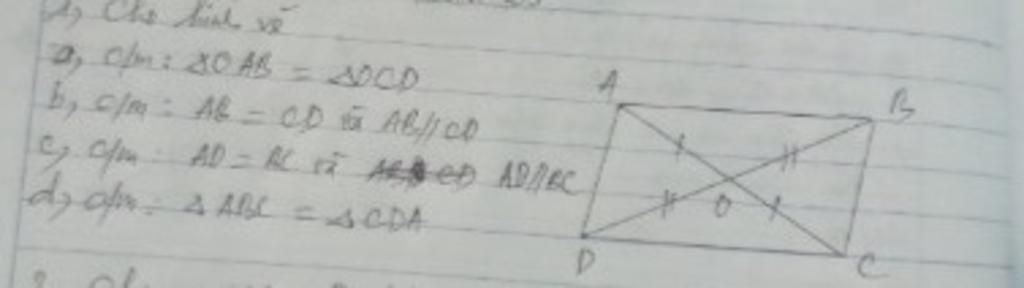 1, Cho hình vẽ
a, c/m: ΔOAB = ΔOCD
b, c/m: AB = CD và AB//CD
c, c/m: AD = BC và AD//BC
d, c/m: ΔABC = ΔCDA
A
B
O
D
C